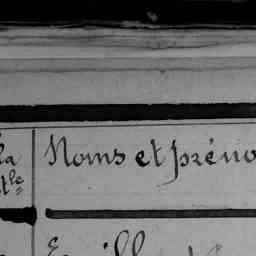 la
tle
Noms et préno